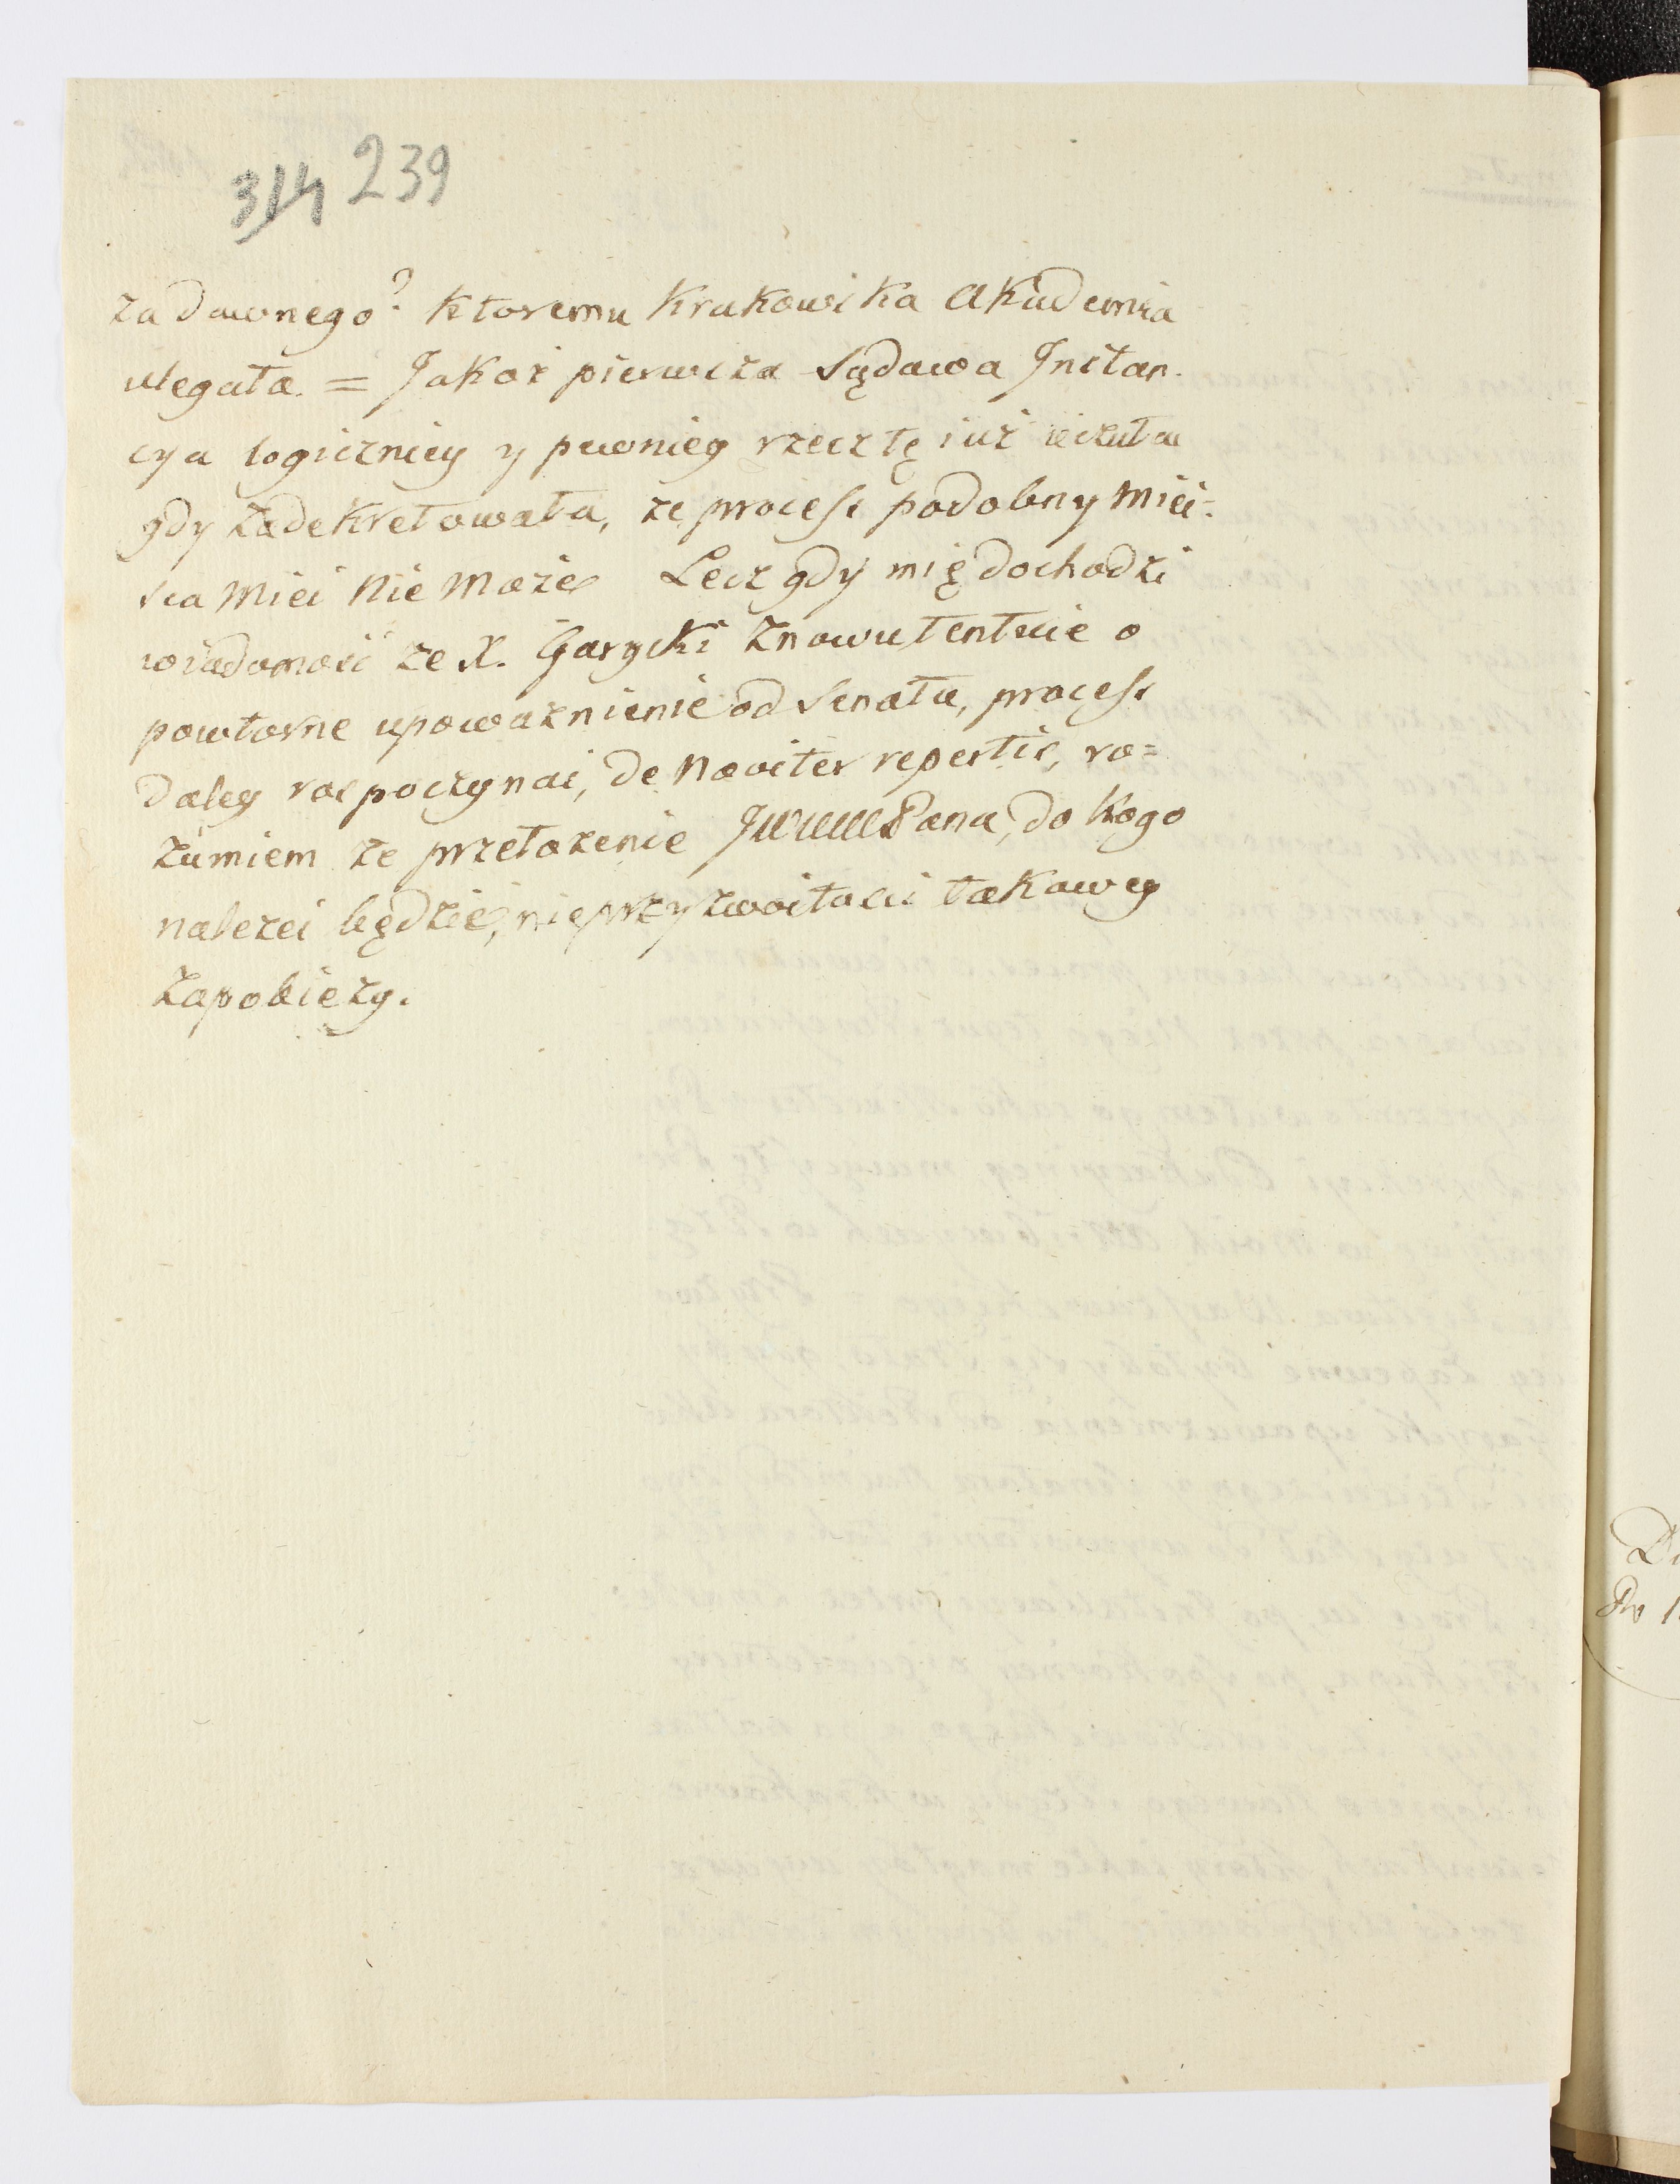 314 239
za dawnego? ktoremu Krakowska Akademia
uległa. = Jakoż pierwsza Sądowa Instan-
cya logiczniey y pewniey rzecz tę iuż uczuła
gdy zadekretowała, że process podobny miey-
sca mieć nie może Lecz gdy mię dochodzi
wiadomość że X. Garycki znowu tentuie o
powtorne upoważnienie od Senatu, process
daley rospoczynać, de noviter repertis, ro=
zumiem że przełożenie JWWWPana, do kogo
należeć będzie, nieprzyzwoitości takowey
zapobieży.